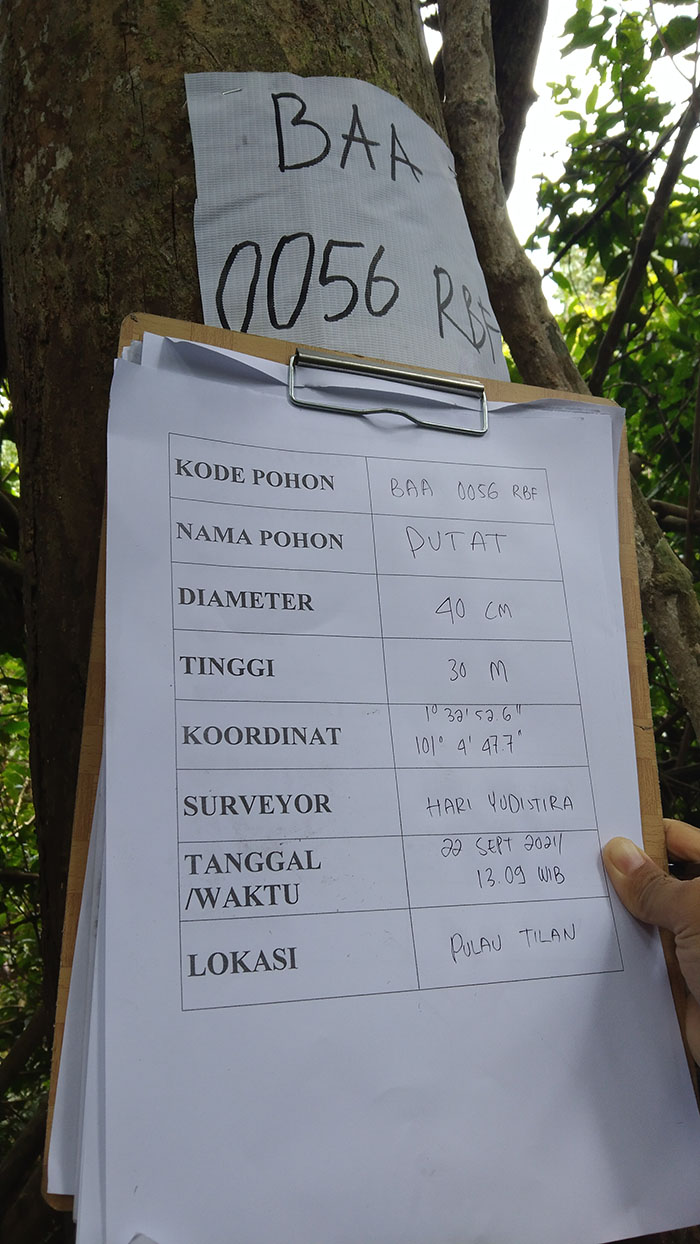 BAA
0056 RBF
KODE POHON BAA 0056 RBF
NAMA POHON PUTAT
DIAMETER 40 CM
TINGGI 30 M
KOORDINAT 1° 32' 52.6"
101° 4' 47.7"
SURVEYOR HARI YUDISTIRA
TANGGAL 22 SEPT 2021/
/WAKTU 13.09 WIB
LOKASI PULAU TILAN